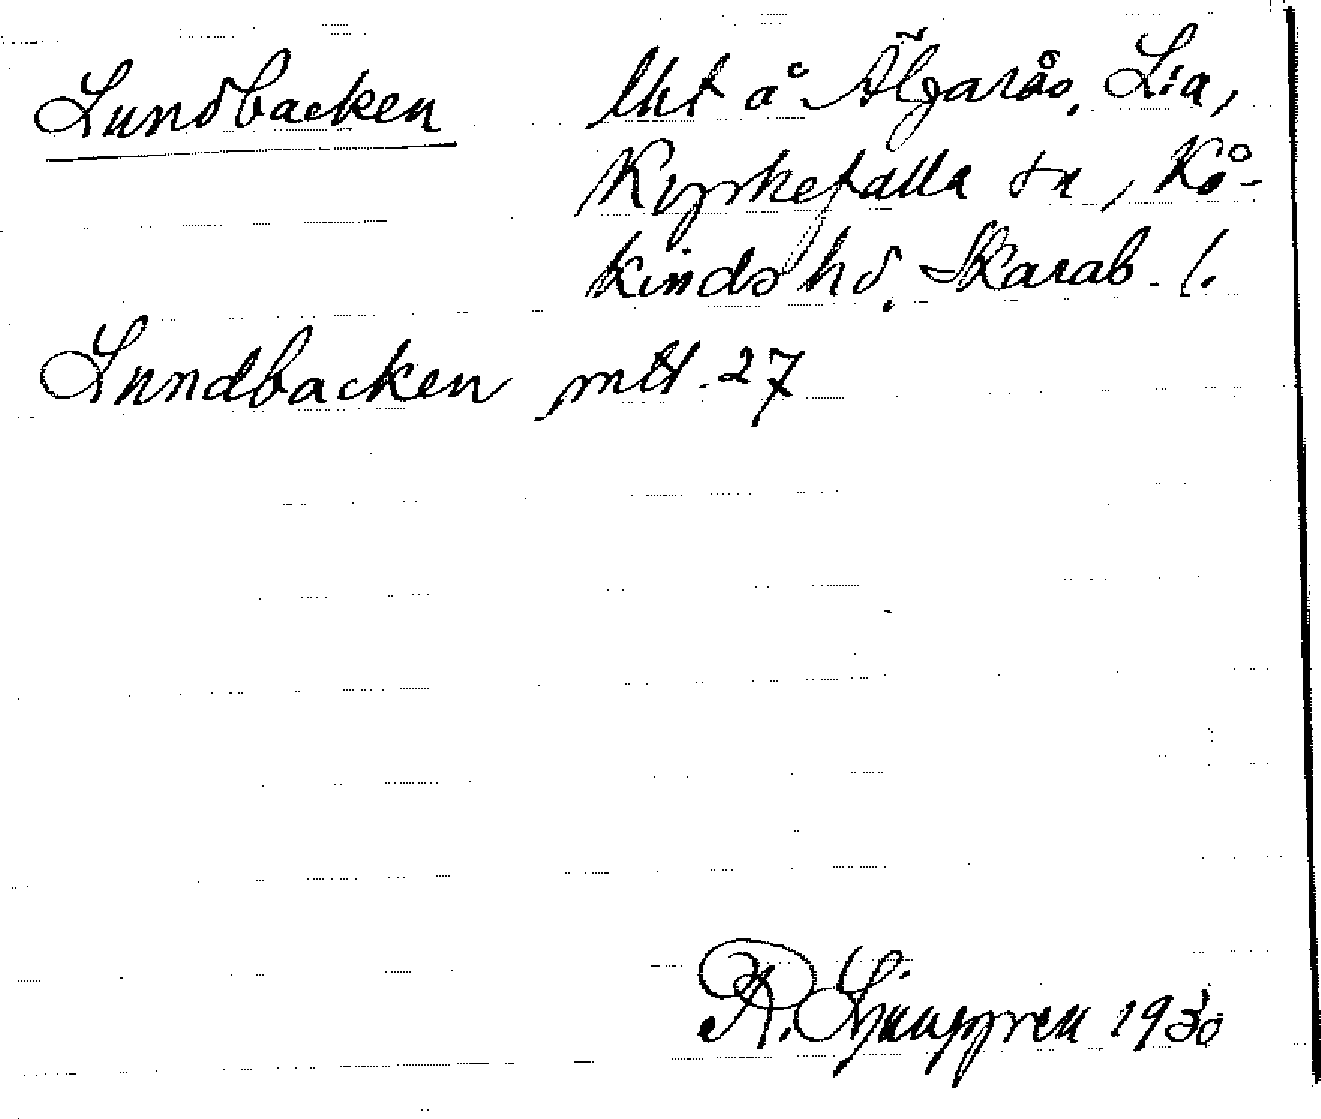 Lundbacken lht å Älgarås, Lia,
Kyrkefalla sn, Kå-
kinds hd. Skarab. l.
Lundbacken mtl. 27
R. Ljunggren 1930